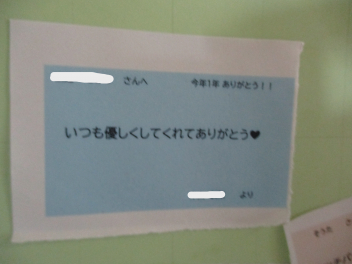 さんへ 今年1年 ありがとう！！
いつも優しくしてくれてありがとう♥
より